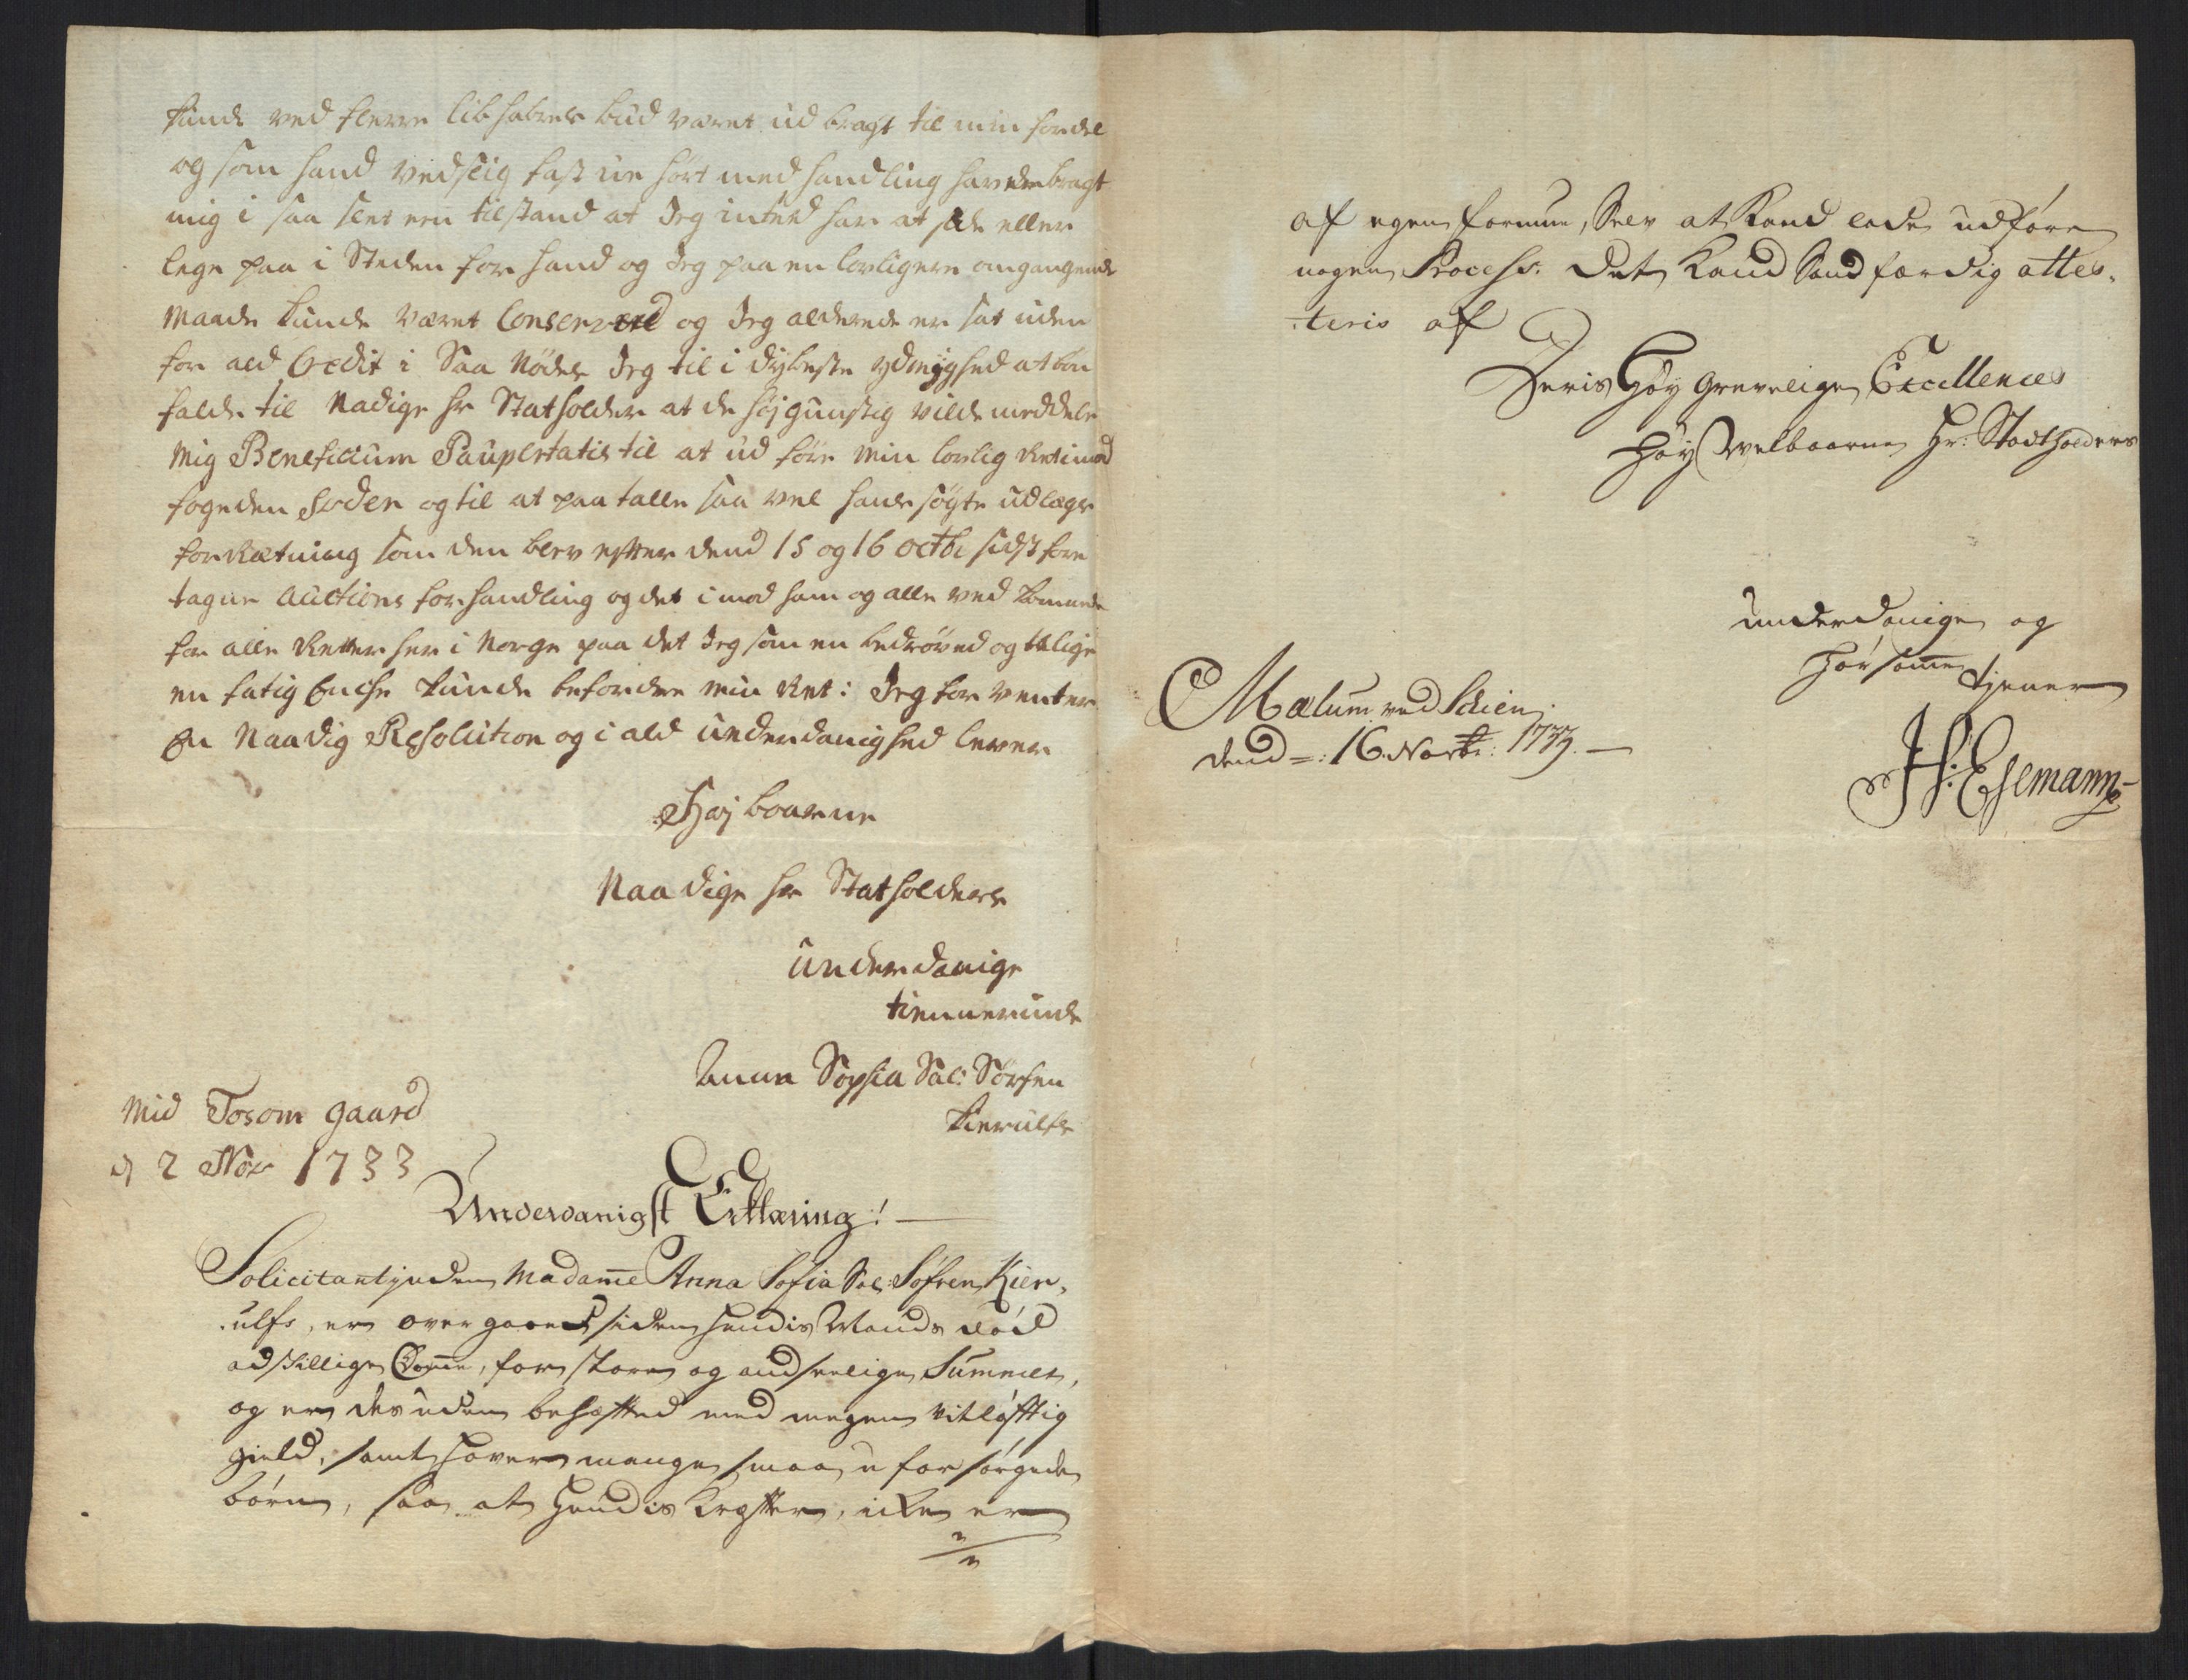 kunde ved flerre libhabres bud været ud bragt til min fordel
og som hand vedslig hastue hört medhandling hav ede bragt
mig i saa slet een tilstand at Jeg inted har at æde eller
lege paa i Steden for hand og Jeg paa en lovligere omgangende
Maade kunde været Conserverd og Jeg allerede er sat uden
for ald Credit i Saa Nödes Jeg til i dybeste ydmyghed at bön
falde til Nadige hr Statholder at de höjgunstig vilde meddele
mig Beneficium Paupertatis til at ud före min lovlig Ret imod
fogeden Soden og til at paa talle saa vel hands søgte udlægs
forRætning som den blev efter dend 15 og 16 octbr sidst fore
tagne auctions forhandling og det imod ham og alle ved kommende
for alle Retter her i Norge paa det Jeg som en bedröved og tillige
en fatig Enche kunde befordre min Ret: Jeg for venter
En Naadig Resolution og i ald underdanighed lever
Høj baarne
Naadige hr Statholders
underdanige
tiennerinde
Anna Sophia Sal: Sörfen
Kierulfs
Mid Tosom gaard
d 2 Nov 1733
Underdanigst Erklæring! —
Solicitantinden Madame Anna Sofia Sal: Söfren Kier-
ulfs, er over gaaed siden hendis Mands død
adskillige Domme, for store og andseelige Summer,
og er des uden behæfted med megen vitløfftig
gield, samt haver mange smaa u forsørgede
börn, saa at hendis Kræffter, icke er
af egen formue, Selv at Kand lade udföre
nogen Process: det Kand Sandfærdig attes-
teris af
Deris Høy Grevelige Excellences
Høy Welbaarne Hr: Stadtholders
underdanige og
hörsomme tjener
Mælum ved Schien
dend =: 16. Novbr: 1733. —
H: Esemann